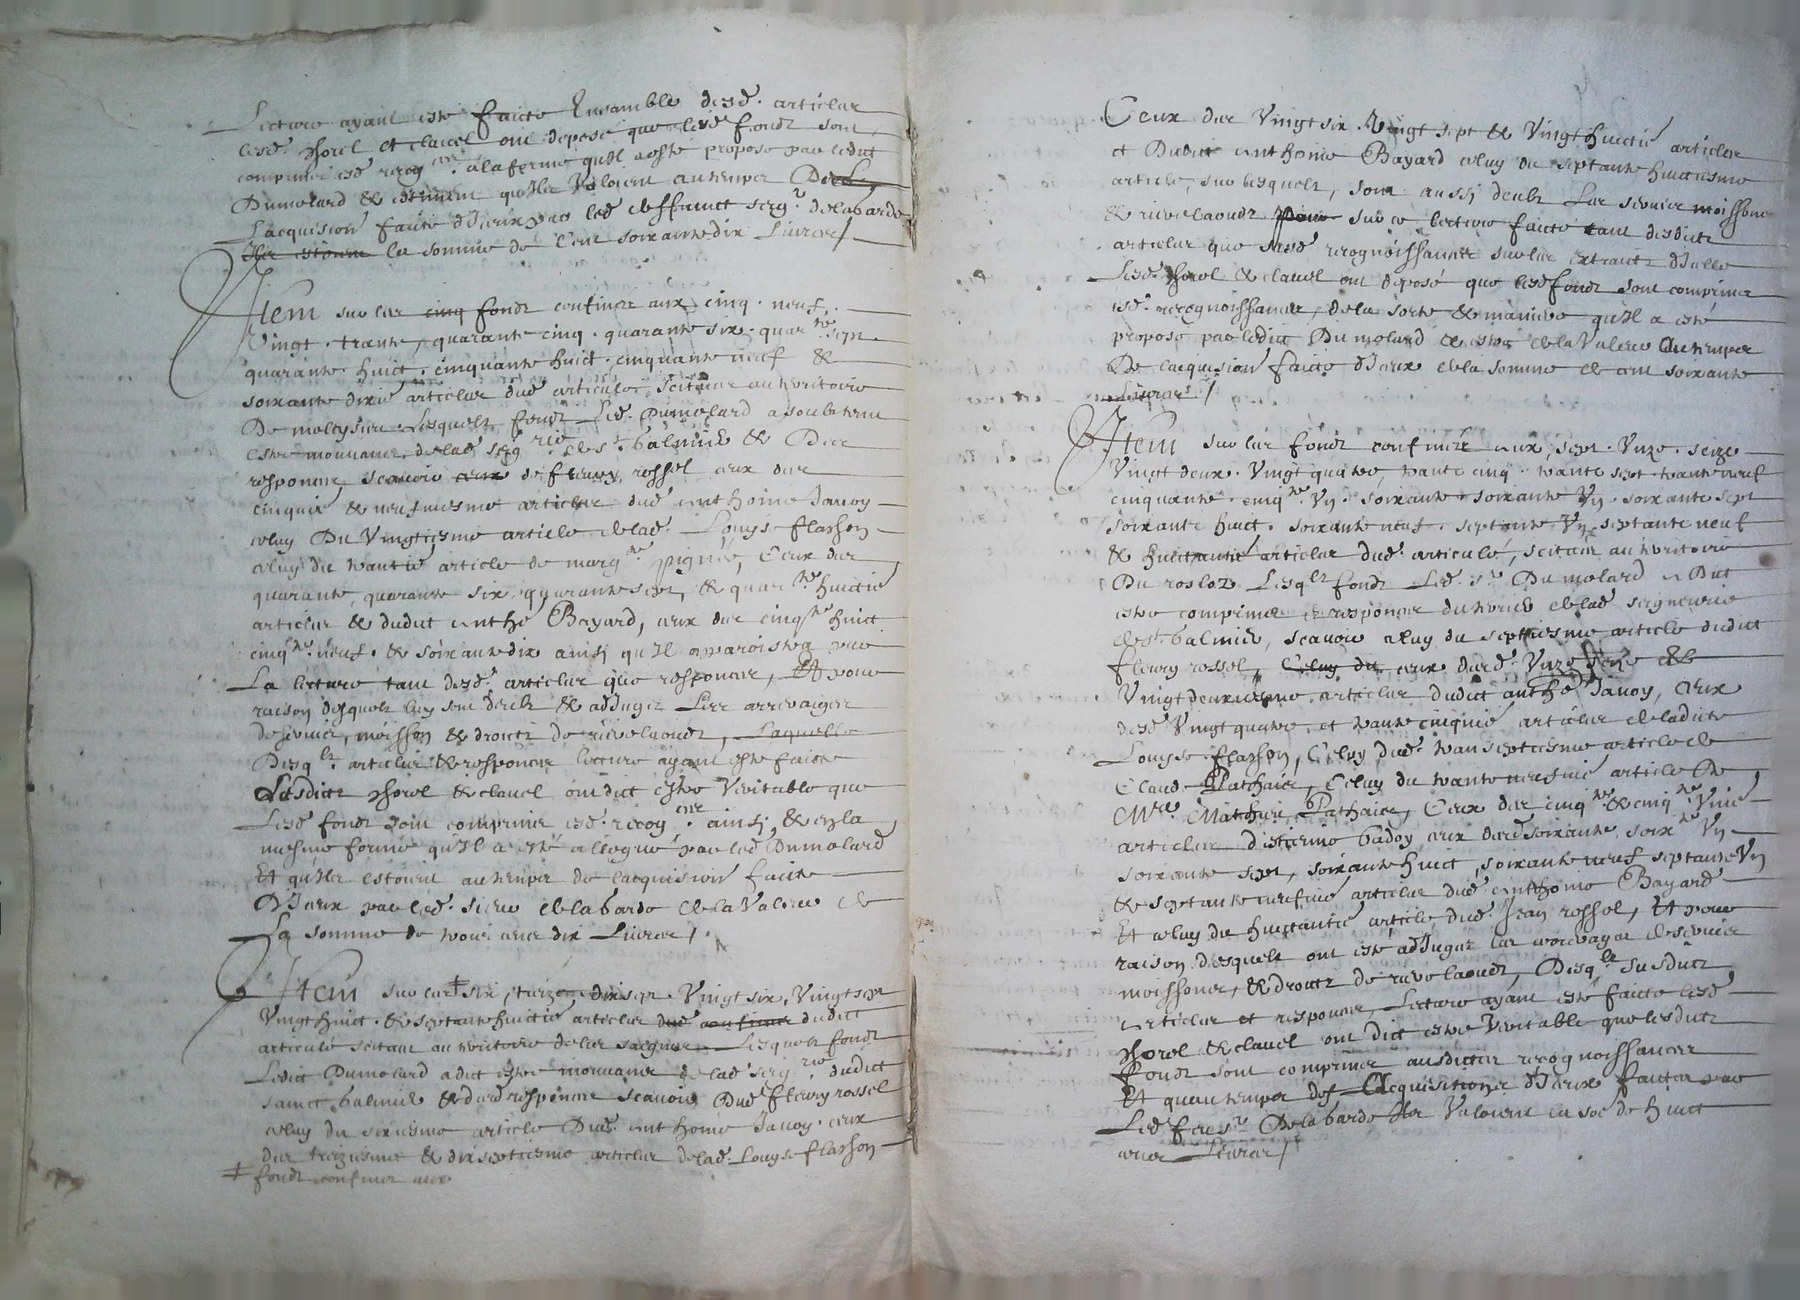 Lecture ayant esté faicte Ensamble desd. articles
lesd. Thorel et clauel ont deposé que lesd fondz sont
comprins esd recog.ces a la forme qu'il a esté proposé par ledict
Dumolard & estiment qu'ilz Valoient au temps De la
L'acquision faicte d'Iceux par led deffunct seigr. delabarde
Ilz estoient la somme de Cent soixante dix Liures /
Item sur les cinq fondz confinez aux cinq. neuf.
Vingt. trante, quarante cinq. quarante six. quarte sept
quarante. huict. cinquante huict. cinquante neuf &
soixante dixie articles dud. articulé, scituez au territoire
De moltysieu Lesquelz fondz Led. Dumolard a soubstenu
estre mouuans de lad. seigrie de st. balmier & Des
responces, scauoir ceux de fleury rossel ceux des
cinquie & neufuiesme articles dud. anthoine Jauoy
celuy Du Vingtiesme article de lad. Louyse flasson
celuy du trantie article de margte pignié, Ceux des
quarante, quarante six, quarante sept, & quarte huictie
articles & dudict antho Bayard, ceux des cinqte huict
cinqte neuf. & soixante dix ainsj qu'Il apparoistra par
La lecture tant desd. articles que responces, Et pour
raison desquelz luy sont deubz & adjugez Les arreraiges
de seruis, moisson & droictz de rieuelaoudz, Laquelle
Desqlz articles & responces lecture ayant esté faicte
Lesdictz Thorel & clauel ont dict estre Veritable que
Lesd fondz sont comprins esd. recog.ces ainsj & en la
mesme forme qu'Il a esté allegué par led Dumolard
Et qu'Ilz estoient au temps de l'acquision faicte
D'Iceux par led. sieur de la barde de la Valeur de
La somme de trois cens dix Liures /
Item sur les ‡ six, treize dixsept. Vingt six, Vingt sept
Vingt huict. & septante huictie articles dud confinez dudict
articulé scituez au territoire de les saignes Lesquelz fondz
Ledict Dumolard a dict estre mouuans de lad seigrie dudict
sainct balmier & desd responces scauoir Dud fleury rossel
celuy du sixiesme article Dud. anthoine Jauoy. ceux
des treiziesme & dix septiesme articles de lad. Louyse flasson
‡ fondz confinez aux
Ceux des Vingt six. Vingt sept & Vingt huictie articles
et Dudict anthoine Bayard celuy du septante huictiesme
article, sur lesquelz, sont aussj deubz Les seruis moissons
& rieuelaoudz pour sur ce lecture faicte tant desdictz
articles que desd recognoissances sur les extraictz d'Icelle
Lesd. Thorel & clauel ont deposé que lesd fondz sont comprins
esd. recognoissances, de la sorte & maniere qu'Il a esté
proposé par ledict Dumolard & estre de la Valeur Au temps
De lacquision faicte d'Iceux de la somme de cent soixante
Liures /
Item sur les fondz confinez aux, sept. Vnze. seize
Vingt deux. Vingt quatre, trante cinq. trante sept trante neuf
cinquante. cinqte Vn. soixante. soixante Vn. soixante sept
soixante huict. soixante neuf. septante Vn septante neuf
& huictantie articles dud. articulé, scituez au territoire
Du rosloz Lesqlz fondz Led. sr. Dumolard a Dict
estre comprins & responces du terrier de lad seigneurie
de st. balmier, scauoir celuy du septiesme article dudict
fleury rossel, Celuy du ceux desd. Vnze seize &
Vingt deuxiesme articles dudict antho Jauoy, Ceux
desd Vingt quatre et trante cinquie articles de ladicte
Louyse flasson, Celuy dud. trante septiesme article de
Claude Pathaire, Celuy du trante neufuie article De
Mre. Mathieu Pathaire, Ceux des cinqte & cinqte Vnie
articles d'Estienne badoy ceux desd soixante soixte Vn
soixante sept, soixante huict, soixante neuf septante Vn
& septante neufuie articles dud. anthoine Bayard
Et celuy du huictantie article dud. Jean rossel, Et pour
raison desquelz ont esté adJugez les arreyages de seruis
moissons, & droictz de rieuelaoudz, Desqlz susdictz
articles et responces, Lecture ayant esté faicte lesd
Thorel & clauel ont dict estre Veritable que lesdictz
fondz sont comprins ausdictes recognoissances
Et qu'au temps des Acquisitions d'Iceux faictes par
Led feu sr De la barde Ilz Valoient la soe de huict
cens Liures /